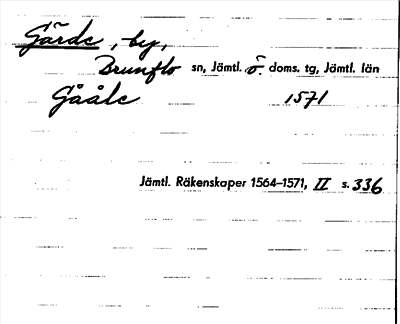 Gärde, by,
Brunflo sn, Jämtl. ö. doms. tg, Jämtl. län
Gåålе 1571
Jämtl. Räkenskaper 1564–1571, II s. 336